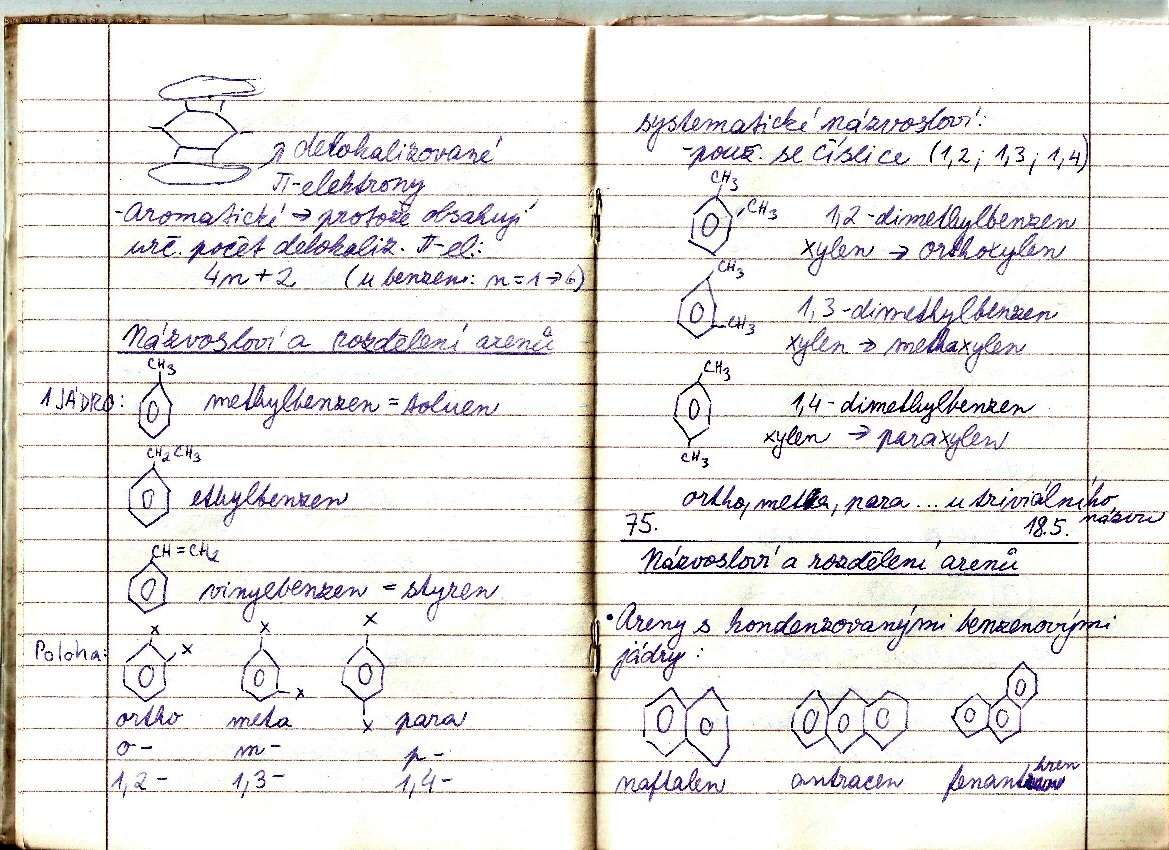 π delokalizované
π-elektrony
-Aromatické → protože obsahují
urč. počet delokaliz. π-el:
4n+2 (u benzenu: n=1→6)
Názvosloví a rozdělení arenů
CH3
1 JÁDRO: methylbenzen = toluen
CH2CH3
ethylbenzen
CH=CH2
vinylbenzen = styren
X X X
Poloha: X X X
ortho meta para
o- m- p-
1,2- 1,3- 1,4-
systematické názvosloví:
-použ. se číslice (1,2; 1,3; 1,4)
CH3
CH3 1,2-dimethylbenzen
xylen → orthoxylen
CH3
CH3 1,3-dimethylbenzen
xylen → methaxylen
CH3
1,4-dimethylbenzen
xylen → paraxylen
CH3
ortho, meta, para ... u triviálního
názvu
75. 18.5.
Názvosloví a rozdělení arenů
• Areny s kondenzovanými benzenovými
jádry:
naftalen antracen fenanthren